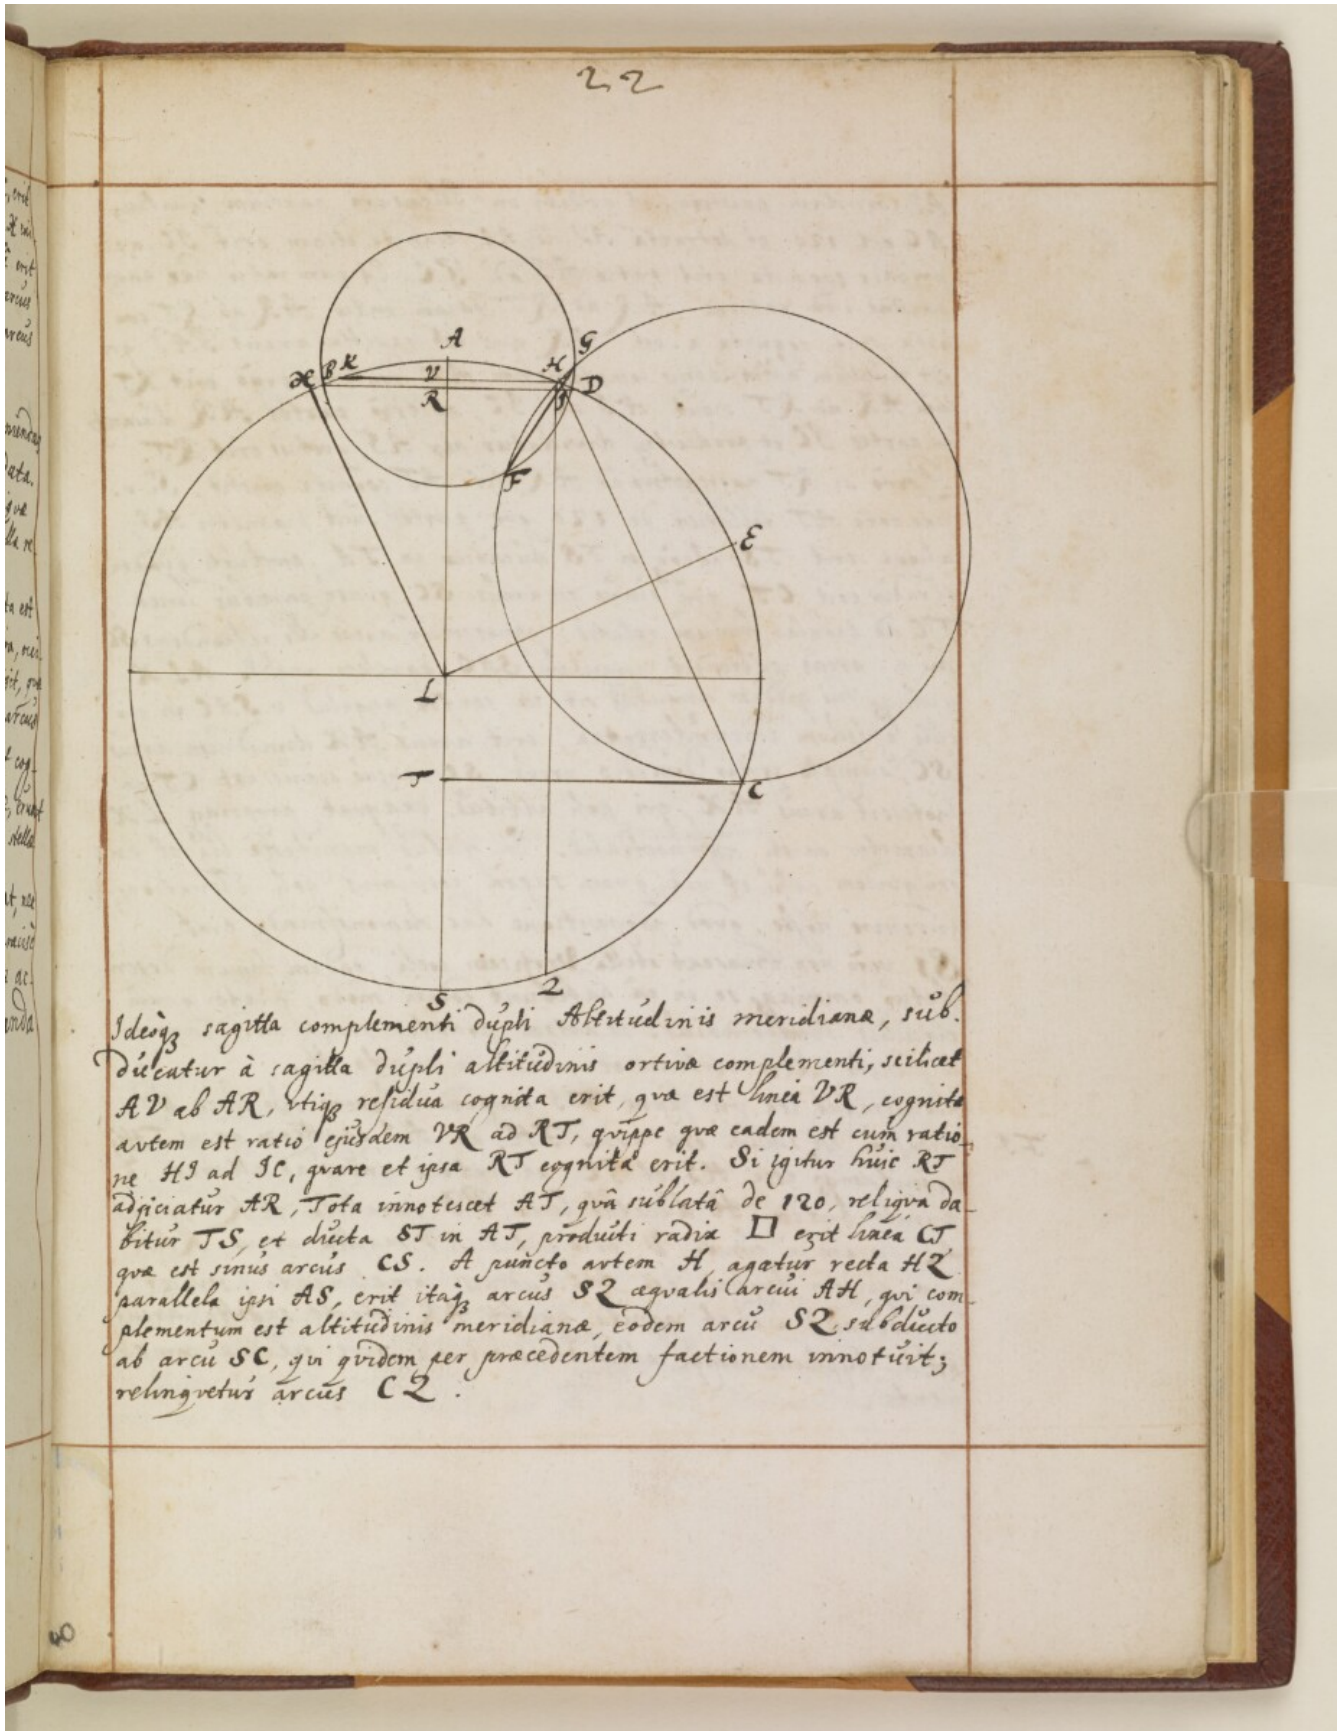 22
A
G
H
B K
V
D
R
I
F
E
L
T
C
S
Z
Ideoq₃ sagitta complementi dupli Altitudinis meridianæ, sub-
ducatur à sagitta dupli altitudinis ortivæ complementi, scilicet
AV ab AR, vtiq₃ residua cognita erit, quæ est linea VR, cognita
autem est ratio ejusdem VR ad RT, quippe quæ eadem est cum ratio-
ne HI ad IC, quare et ipsa RT cognita erit. Si igitur huic RT
adjiciatur AR, Tota innotescet AT, quâ sublatâ de 120, reliqua da-
bitur TS, et ducta ST in AT, producti radix □ erit linea CT
quæ est sinus arcus CS. A puncto autem H, agatur recta HZ
parallela ipsi AS, erit itaq₃ arcus SZ æqualis arcui AH, qui com-
plementum est altitudinis meridianæ, eodem arcu SZ subducto
ab arcu SC, qui quidem per præcedentem factionem innotuit;
relinquetur arcus CZ.